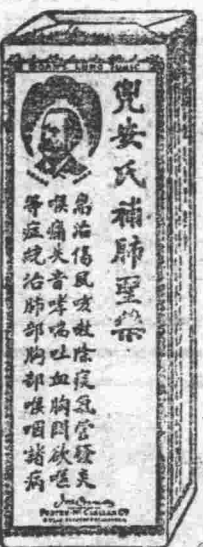 DOAN'S LUNG TONIC
兜安氏補肺聖藥
易治傷風咳杜除痰氣管發炎
喉痛失音哮喘吐血胸悶欲嘔
等症統治肺部胸部喉咽諸病
FOSTER-McCLELLAN CO